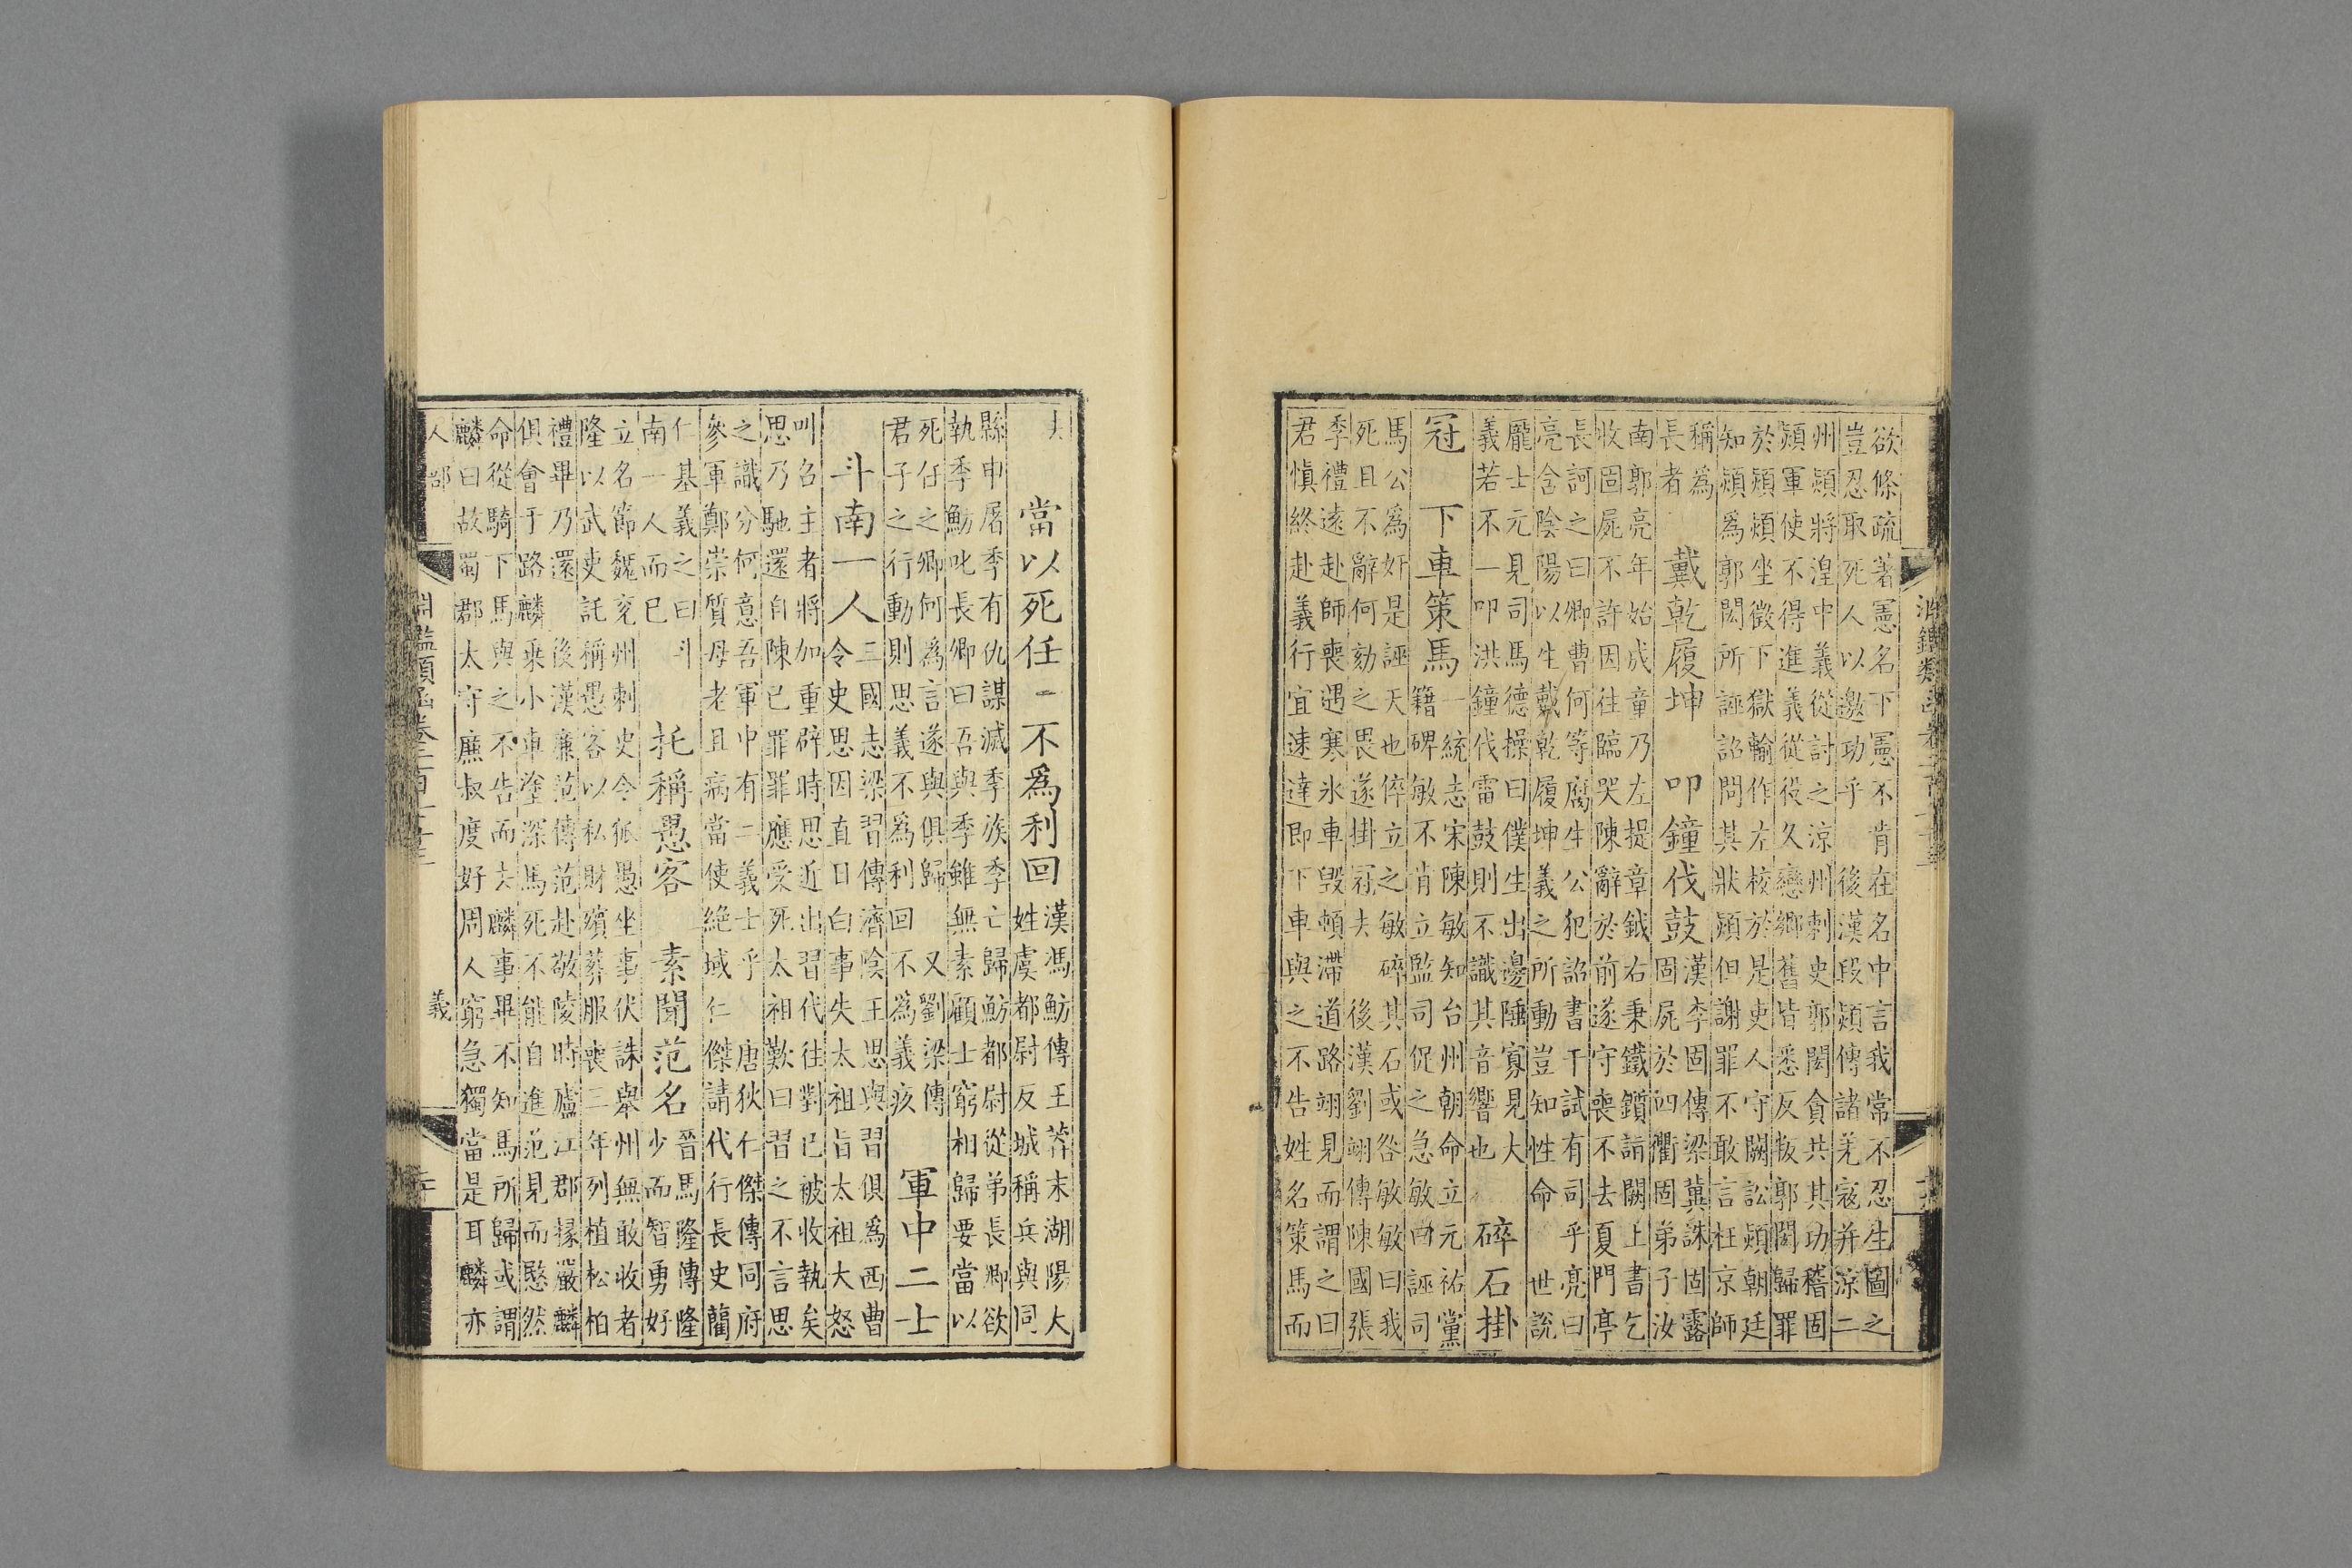 欲條疏著憲名下憲不肯在名中言我常不忍生圖之
豈忍取死人以邀功乎　後漢段熲傳諸羌寇并涼二
州熲將湟中義從討之涼州刺史郭閎貪共其功稽固
熲軍使不得進義從役久戀鄉舊皆悉反叛郭閎歸罪
於熲熲坐徵下獄輸作左校於是吏人守闕訟熲朝廷
知熲為郭閎所誣詔問其狀熲但謝罪不敢言枉京師
稱為
長者
戴乾履坤　叩鐘伐鼓
漢李固傳梁冀誅固露
固屍於四衢固弟子汝
南郭亮年始成童乃左提章鉞右秉鐵鑕詣闕上書乞
收固屍不許因往臨哭陳辭於前遂守喪不去夏門亭
長訶之曰卿曹何等腐生公犯詔書干試有司乎亮曰
亮含陰陽以生戴乾履坤義之所動豈知性命　世說
龐士元見司馬德操曰僕生出邊陲寡見大
義若不一叩洪鐘伐雷鼓則不識其音響也
碎石掛
冠　下車策馬
一統志宋陳敏知台州朝命立元祐黨
籍碑敏不肯立監司促之急敏曰誣司
馬公爲奸是誣天也倅立之敏碎其石或咎敏敏曰我
死且不辭何劾之畏遂掛冠去　後漢劉翊傳陳國張
季禮遠赴師喪遇寒氷車毀頓滯道路翊見而謂之曰
君愼終赴義行宜速達即下車與之不告姓名策馬而
當以死任　不爲利回
漢馮魴傳王莽末湖陽大
姓虞都尉反城稱兵與同
縣申屠季有仇謀滅季族季亡歸魴都尉從弟長卿欲
執季魴叱長卿曰吾與季雖無素顧士窮相歸要當以
死任之卿何爲言遂與俱歸　又劉梁傳
君子之行動則思義不爲利回不爲義疚
軍中二士
斗南一人
三國志梁習傳濟陰王思與習俱爲西曹
令史思因直日白事失太祖旨太祖大怒
叫召主者將加重辟時思近出習代往對已被收執矣
思乃馳還自陳已罪罪應受死太祖歎曰習之不言思
之識分何意吾軍中有二義士乎　唐狄仁傑傳同府
參軍鄭崇質母老且病當使絕域仁傑請代行長史藺
仁基義之曰斗
南一人而已
托稱愚客　素聞范名
晉馬隆傳隆
少而智勇好
立名節魏兖州刺史令狐愚坐事伏誅舉州無敢收者
隆以武吏託稱愚客以私財殯葬服喪三年列植松柏
禮畢乃還　後漢廉范傳范赴敬陵時廬江郡掾嚴麟
俱會于路麟乘小車塗深馬死不能自進范見而愍然
命從騎下馬與之不告而去麟事畢不知馬所歸或謂
麟曰故蜀郡太守廉叔度好周人窮急獨當是耳麟亦
人部
義